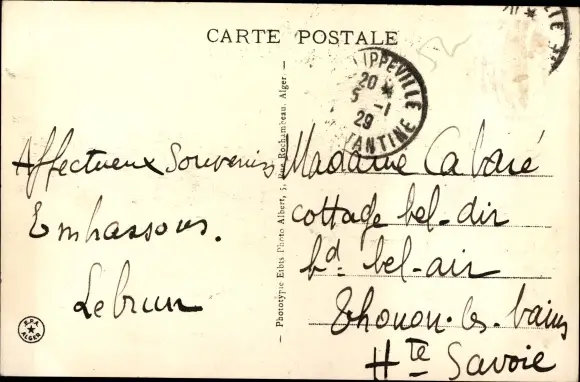 CARTE POSTALE
52
PHILIPPEVILLE
20 *
5 -1
29
CONSTANTINE
Affectueux Souvenirs
Embrassons.
Lebrun
Madame Cabaré
cottage bel-air
bd. bel-air
Thonon-les-bains
Hte Savoie
— Phototypie Etbts Photo Albert, 5, Rue Rochambeau, Alger. —
E.P.A.
ALGER